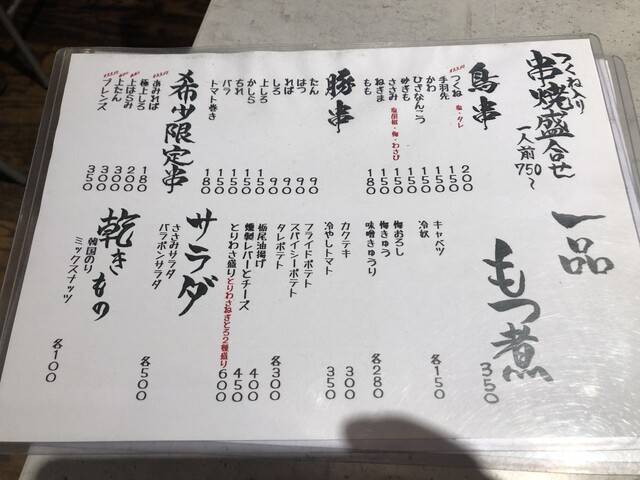 つくね入り
串焼盛合せ
一人前750〜
鳥串
つくね 塩・タレ 200
手羽先 150
かわ 150
ひさなんこつ 150
砂ぎも 150
ささみ 塩胡椒・梅・わさび 150
ねぎま
もも 180
豚串
たん 90
はつ 90
れば 90
しろ 90
上しろ 150
かしら 150
ちれ 150
バラ 150
トマト巻き 180
希少限定串
あみれば 180
極上しろ 180
上はらみ 200
上たん 300
フレンズ 350
一品
もつ煮 350
キャベツ
冷奴 各150
梅おろし
梅きゅう
味噌きゅうり 各280
カクテキ 300
冷やしトマト 350
フライドポテト
スパイシーポテト
タレポテト 各300
栃尾油揚げ 400
燻製レバーとチーズ 450
とりわさ盛り とりわさねぎとろ2種盛り 600
サラダ
ささみサラダ
バラポンサラダ 各500
乾きもの
韓国のり
ミックスナッツ 各100